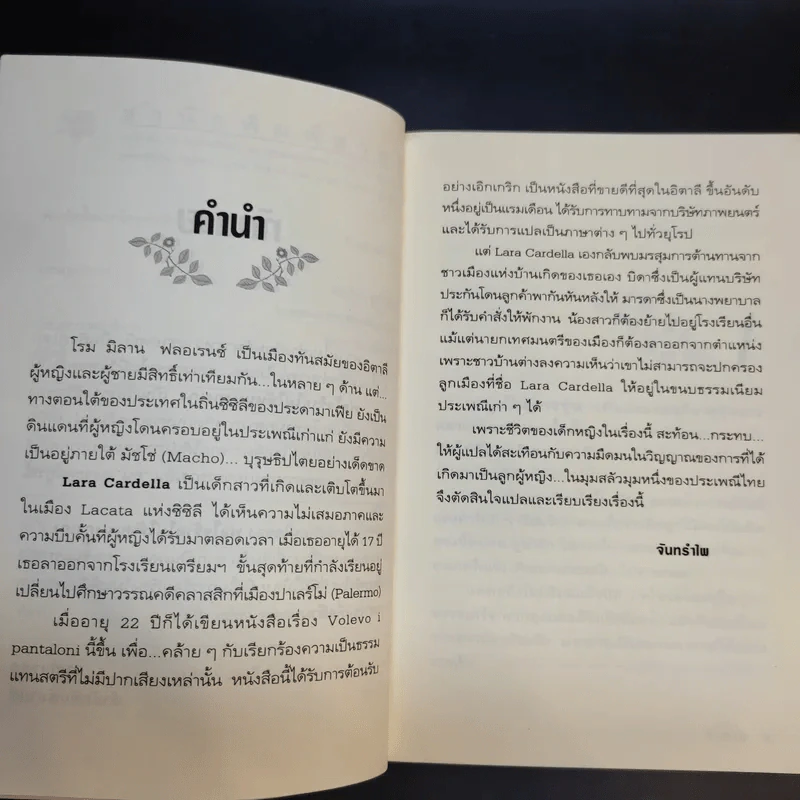 คำนำ
โรม มิลาน ฟลอเรนซ์ เป็นเมืองทันสมัยของอิตาลี
ผู้หญิงและผู้ชายมีสิทธิ์เท่าเทียมกัน...ในหลาย ๆ ด้าน แต่...
ทางตอนใต้ของประเทศในถิ่นซิซิลีของประดามาเฟีย ยังเป็น
ดินแดนที่ผู้หญิงโดนครอบอยู่ในประเพณีเก่าแก่ ยังมีความ
เป็นอยู่ภายใต้ มัชโช่ (Macho)... บุรุษธิปไตยอย่างเด็ดขาด
Lara Cardella เป็นเด็กสาวที่เกิดและเติบโตขึ้นมา
ในเมือง Lacata แห่งซิซิลี ได้เห็นความไม่เสมอภาคและ
ความบีบคั้นที่ผู้หญิงได้รับมาตลอดเวลา เมื่อเธออายุได้ 17 ปี
เธอลาออกจากโรงเรียนเตรียมฯ ชั้นสุดท้ายที่กำลังเรียนอยู่
เปลี่ยนไปศึกษาวรรณคดีคลาสสิกที่เมืองปาเลร์โม่ (Palermo)
เมื่ออายุ 22 ปีก็ได้เขียนหนังสือเรื่อง Volevo i
pantaloni นี้ขึ้น เพื่อ...คล้าย ๆ กับเรียกร้องความเป็นธรรม
แทนสตรีที่ไม่มีปากเสียงเหล่านั้น หนังสือนี้ได้รับการต้อนรับ
อย่างเอิกเกริก เป็นหนังสือที่ขายดีที่สุดในอิตาลี ขึ้นอันดับ
หนึ่งอยู่เป็นแรมเดือน ได้รับการทาบทามจากบริษัทภาพยนตร์
และได้รับการแปลเป็นภาษาต่าง ๆ ไปทั่วยุโรป
แต่ Lara Cardella เองกลับพบมรสุมการต้านทานจาก
ชาวเมืองแห่งบ้านเกิดของเธอเอง บิดาซึ่งเป็นผู้แทนบริษัท
ประกันโดนลูกค้าพากันหันหลังให้ มารดาซึ่งเป็นนางพยาบาล
ก็ได้รับคำสั่งให้พักงาน น้องสาวก็ต้องย้ายไปอยู่โรงเรียนอื่น
แม้แต่นายกเทศมนตรีของเมืองก็ต้องลาออกจากตำแหน่ง
เพราะชาวบ้านต่างลงความเห็นว่าเขาไม่สามารถจะปกครอง
ลูกเมืองที่ชื่อ Lara Cardella ให้อยู่ในขนบธรรมเนียม
ประเพณีเก่า ๆ ได้
เพราะชีวิตของเด็กหญิงในเรื่องนี้ สะท้อน...กระทบ...
ให้ผู้แปลได้สะเทือนกับความมืดมนในวิญญาณของการที่ได้
เกิดมาเป็นลูกผู้หญิง...ในมุมสลัวมุมหนึ่งของประเพณีไทย
จึงตัดสินใจแปลและเรียบเรียงเรื่องนี้
จันทรำไพ